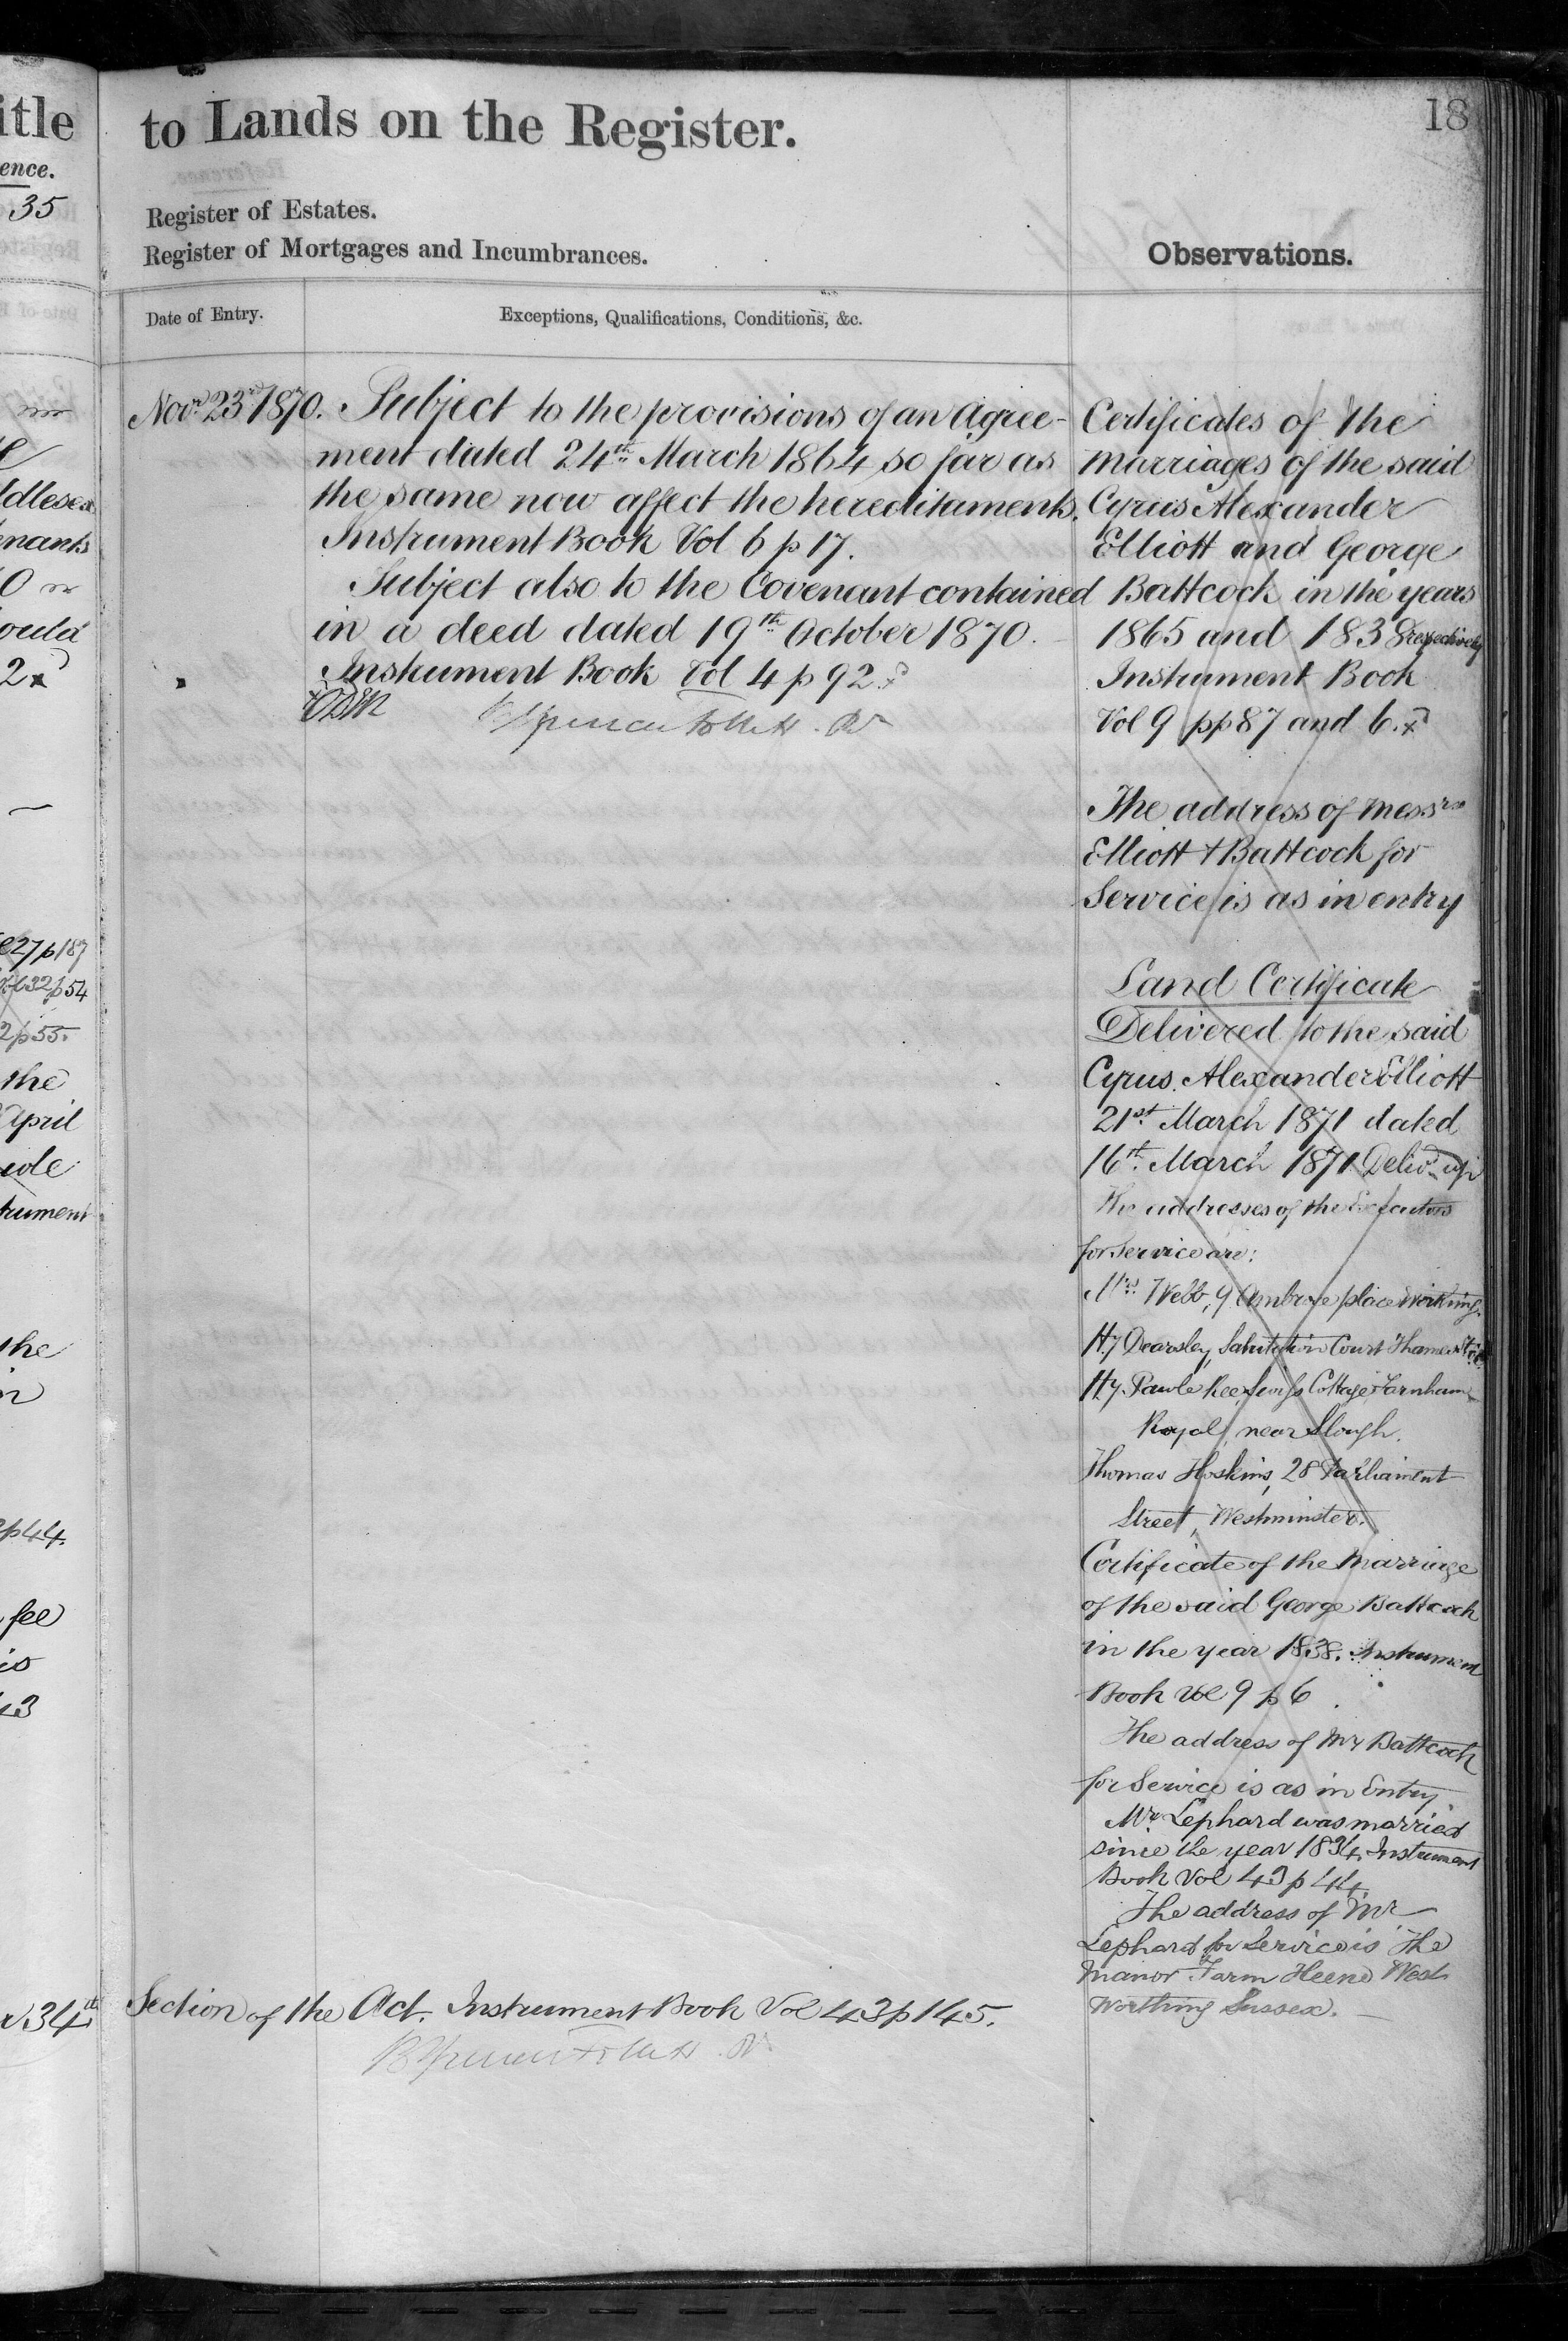 itle
ence.
35
dlesex
nants
0
ould
2x
e 27 p 187
32 p 54
2 p 55.
the
April
trument
the
in
p 44.
fee
is
43
34th
to Lands on the Register.
18
Register of Estates.
Register of Mortgages and Incumbrances.
Observations.
Date of Entry.
Exceptions, Qualifications, Conditions, &c.
Novr 23rd 1870. Subject to the provisions of an Agree-
ment dated 24th March 1864 so far as
the same now affect the hereditaments.
Instrument Book Vol 6 p 17.
Subject also to the Covenant contained
in a deed dated 19th October 1870.
Instrument Book Vol 4 p 92 x
Section of the Act. Instrument Book Vol 43 p 145.
Certificates of the
marriages of the said
Cyrus Alexander
Elliott and George
Battcock in the years
1865 and 1838 respectively
Instrument Book
Vol 9 pp 87 and 6. x
The address of Messrs
Elliott & Battcock for
Service is as in entry
Land Certificate
Delivered to the said
Cyrus Alexander Elliott
21st March 1871 dated
16th March 1871 Delivd up
The addresses of the Executors
for Service are:
Mrs Webb, 9 Ambrose place Worthing.
Hy Dearsley, Salutation Court Thames St
Hy Pawle Ree, Swiss Cottage, Farnham
Royal, near Slough.
Thomas Hoskins, 28 Parliament
Street, Westminster.
Certificate of the Marriage
of the said George Battcock
in the year 1838. Instrument
Book Vol 9 p 6
The address of Mr Battcock
for Service is as in Entry.
Mr Lephard was married
since the year 1834. Instrument
Book Vol 43 p 44.
The address of Mr
Lephard for Service is The
Manor Farm Heene West
Worthing Sussex.